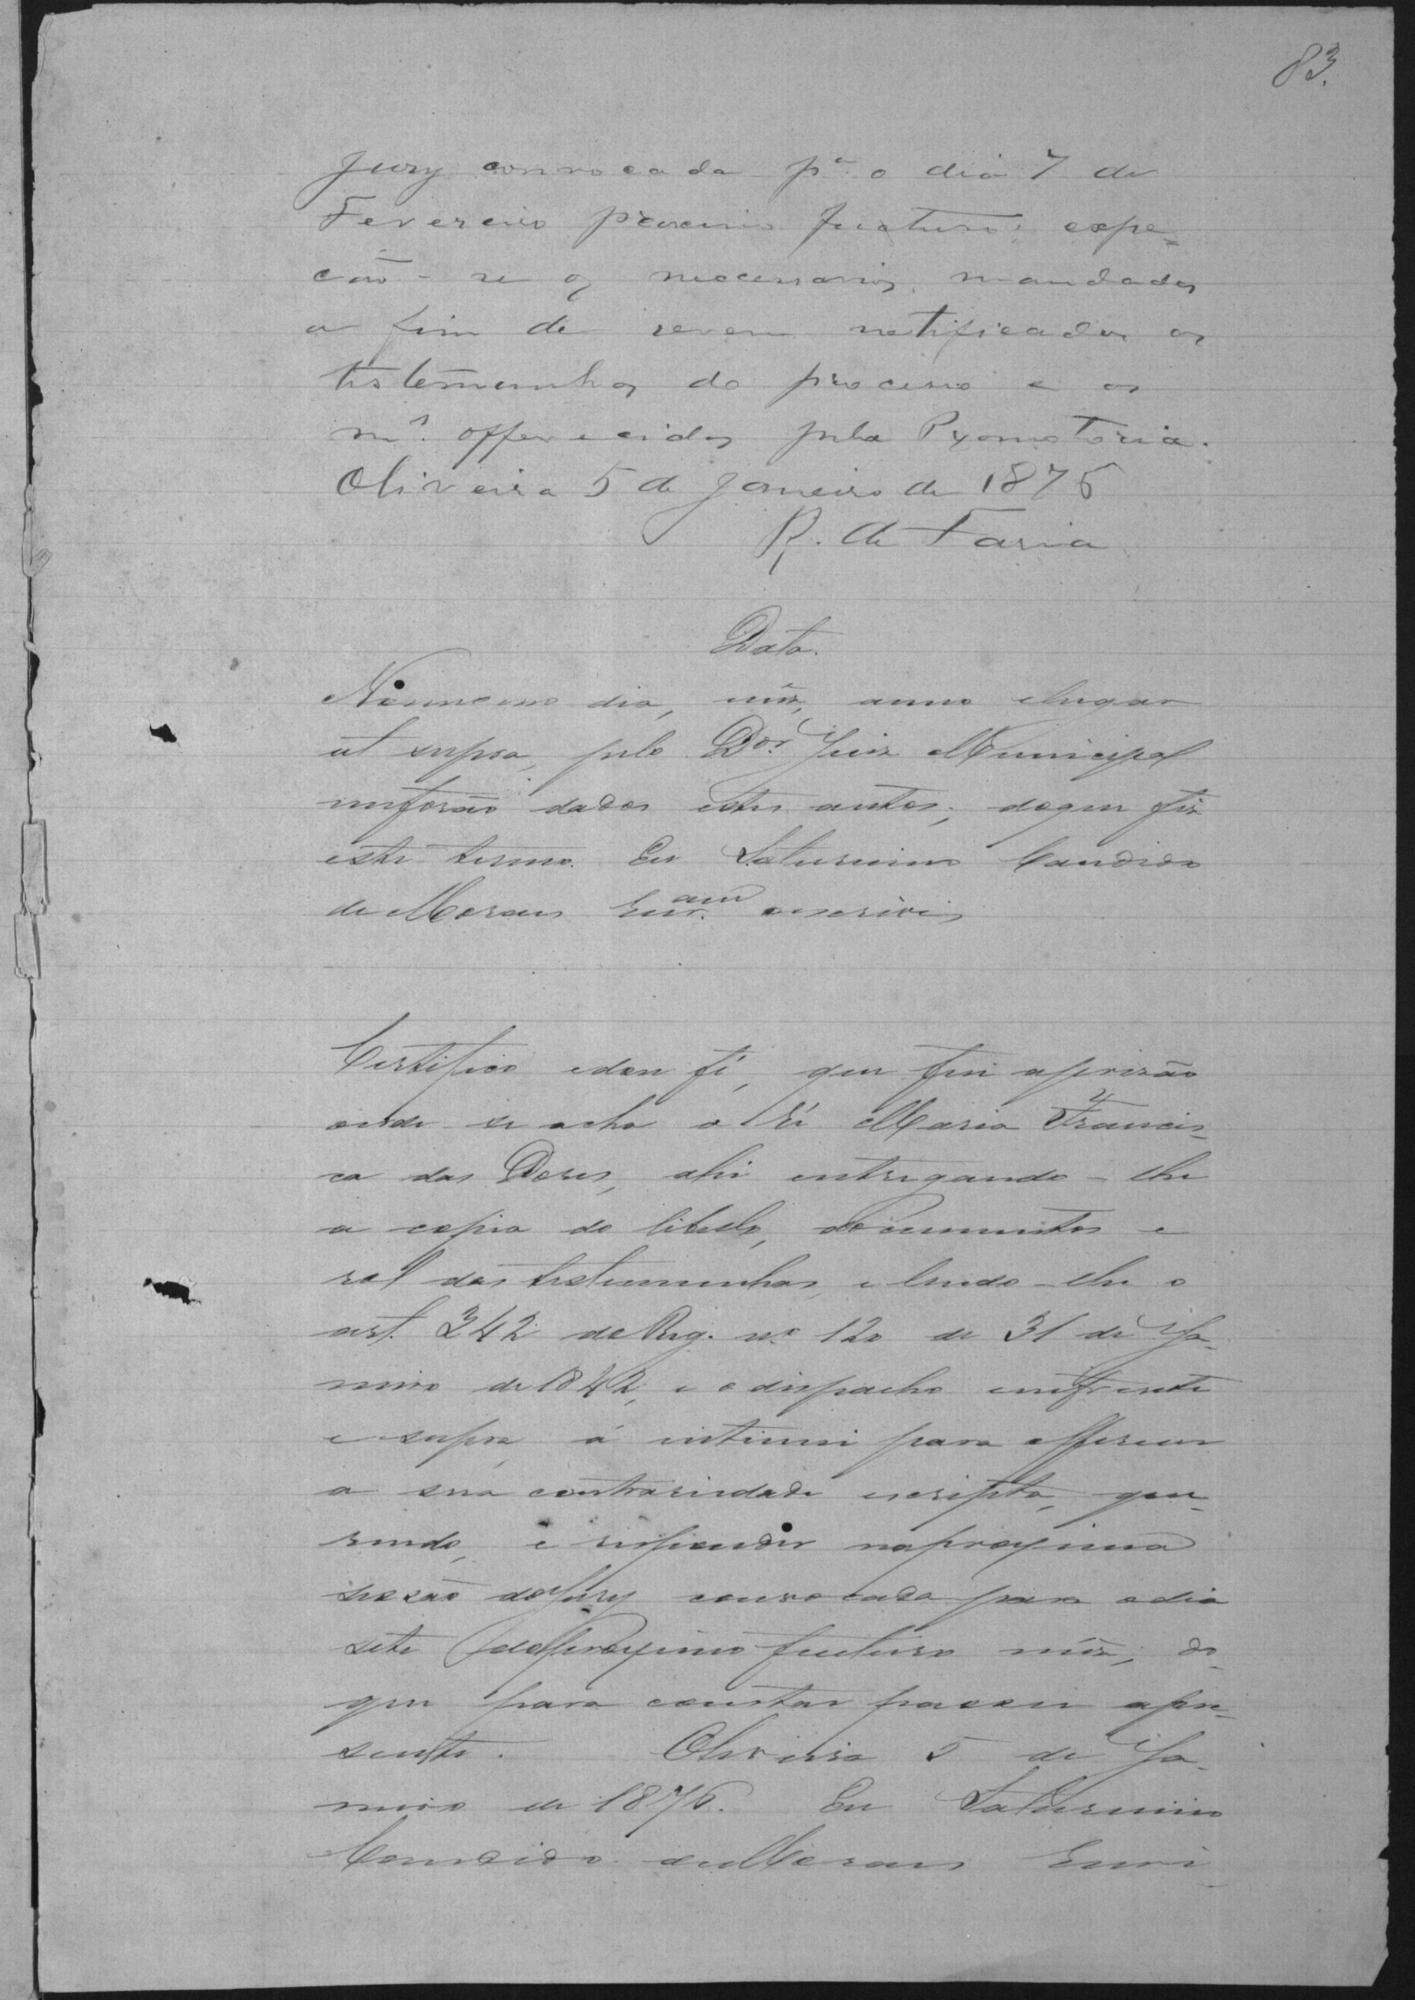 83.
Jury convocada pª o dia 7 de
Fevereiro proximo fucturo; expe-
ção-se os necessarios mandados
a fim de serem notificadas as
testemunhas do processo e as
mˢ. offerecidas pela Promotoria.
Oliveira 5 de Janeiro de 1876
R. de Faria
Data.
No mesmo dia, mês, anno e lugar
ut supra, pelo Dor. Juiz Municipal
me forão dados estes autos; do que fiz
este termo. Eu Saturnino Candido
de Moraes Escr.am o escrivi
Certifico e dou fé, que fui a prisão
onde se acha a Ré Maria Francis-
ca das Dores, ahi entregando-lhe
a copia do libello, documentos e
rol das testemunhas, e lendo-lhe o
art. 342 do Reg. nº 120 de 31 de Ja-
neiro de 1842, e o despacho em frente
e supra, á intimei para offerecer
a sua contrariedade escripta, que-
rendo, e responder na proxima
sessão do Jury convocada para o dia
sete do proximo fucturo mês, do
que para constar passei a pre-
sente. Oliveira 5 de Ja-
neiro de 1876. Eu Saturnino
Candido de Moraes Escri-